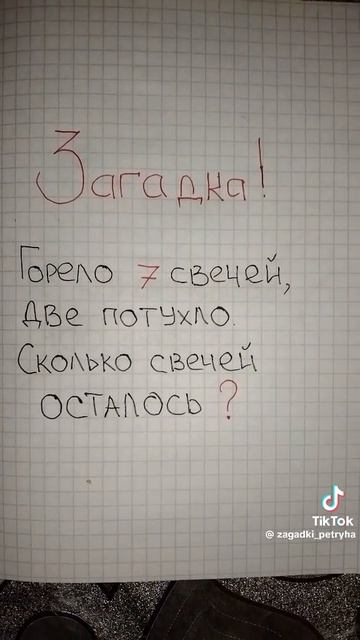 Загадка!
Горело 7 свечей,
две потухло.
Сколько свечей
осталось?
TikTok
@ zagadki_petryha